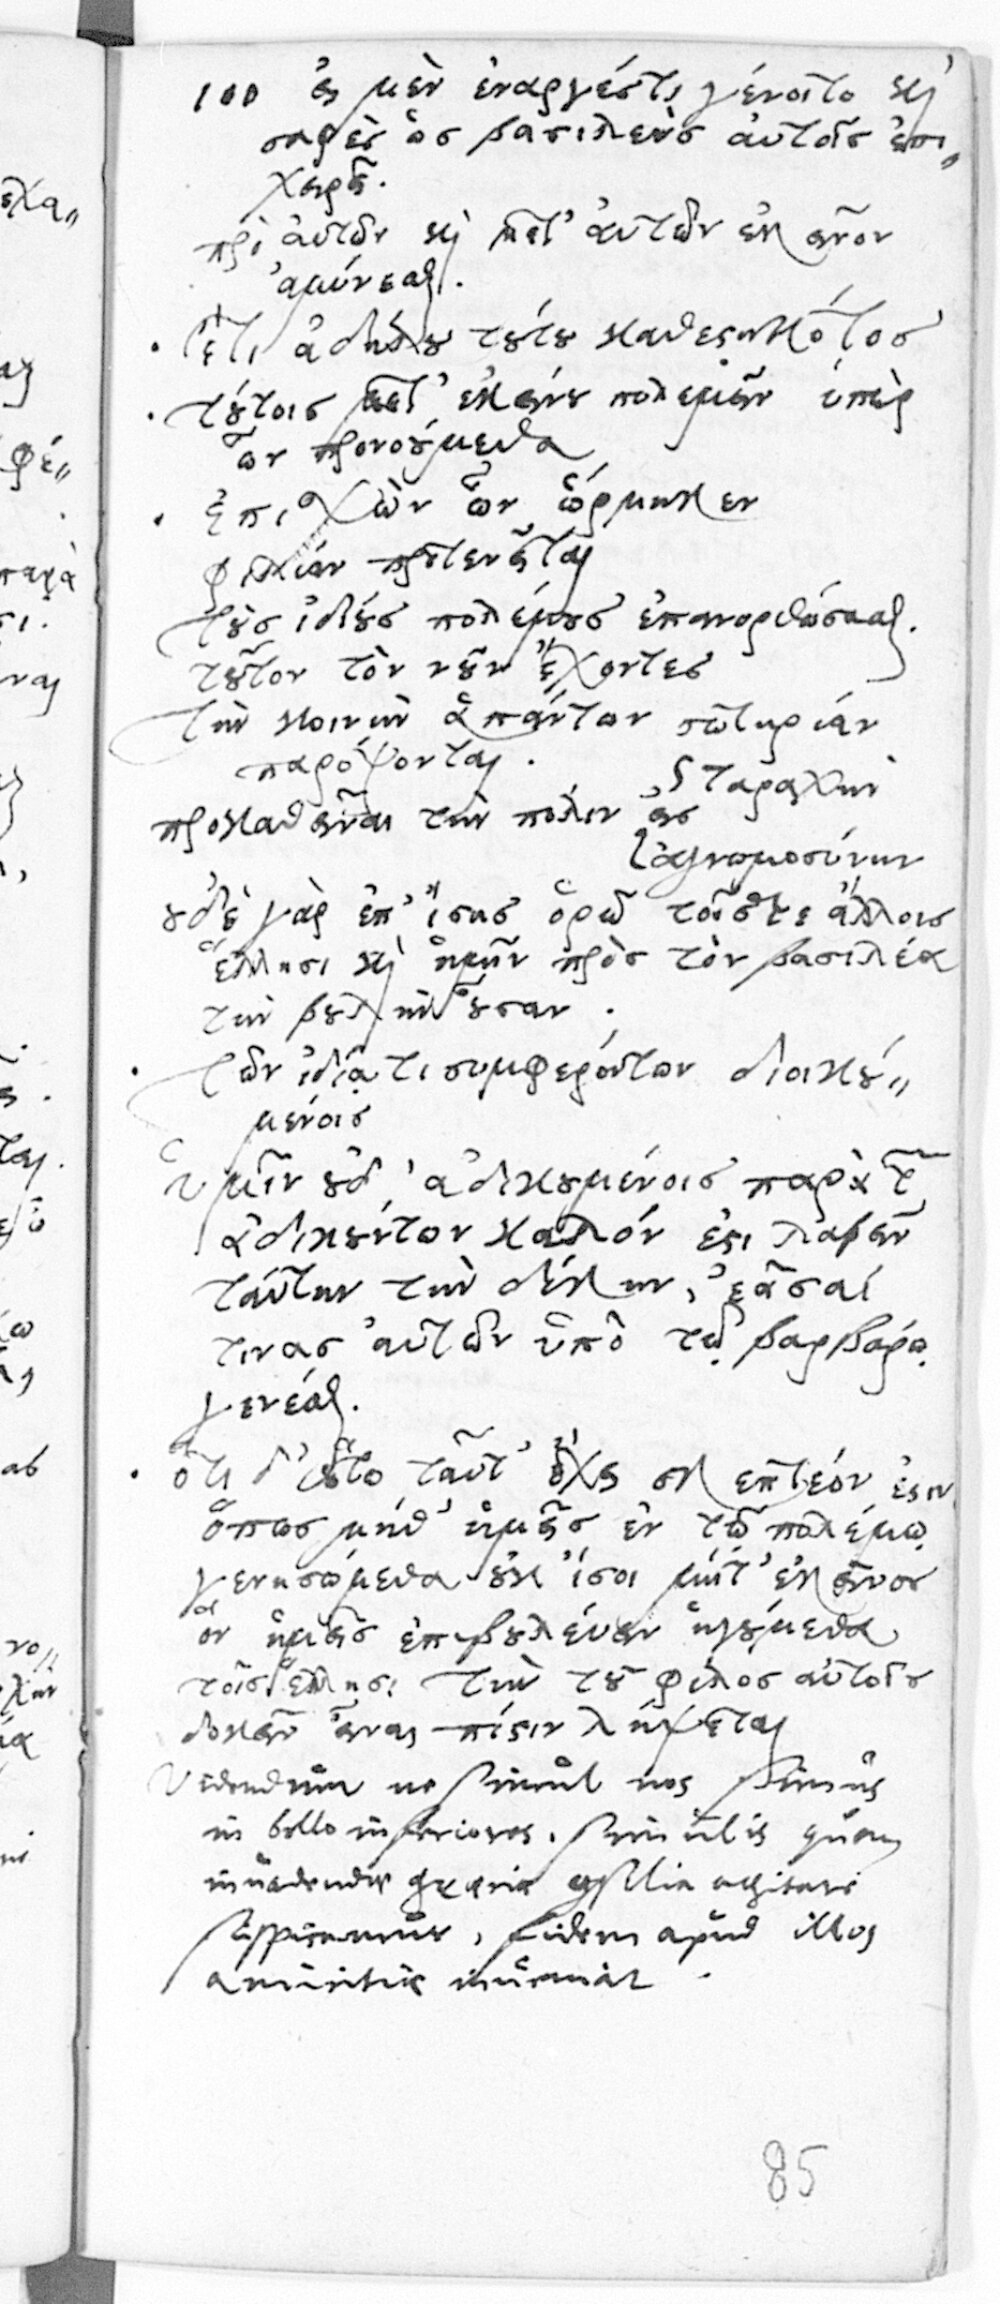 100 εἰ μὲν ἐναργές τι γένοιτο καὶ
σαφὲς ὡς βασιλεὺς αὐτοῖς ἐπι„
χειρεῖ.
πρὸ αὐτῶν καὶ μετ' αὐτῶν ἐκεῖνον
ἀμύνεσθαι.
· Ἔτι ἀδήλου τούτου καθεστηκότος
· τούτοις μετ' ἐκείνου πολεμεῖν ὑπὲρ
ὧν προνοούμεθα
· ἐπισχὼν ὧν ὥρμηκεν
φιλίαν προτενεῖται
τοὺς ἰδίους πολέμους ἐπανορθώσασθαι.
τοῦτον τὸν νοῦν ἔχοντες
τὴν κοινὴν ἁπάντων σωτηρίαν
παρόψονται.
ταραχὴν
προκαθεῖναι τὴν πόλιν εἰς
ἀγνωμοσύνην
οὐδὲ γὰρ ἐπ' ἴσης ὁρῶ τοῖς τε ἄλλοις
ἕλλησι καὶ ἡμῖν πρὸς τὸν βασιλέα
τὴν βουλὴν οὖσαν.
· τῶν ἰδίᾳ τι συμφερόντων διοικου„
μένοις
ὑμῖν οὐδ' ἀδικουμένοις παρὰ τῶν
ἀδικούντων καλόν ἐστι λαβεῖν
ταύτην τὴν δίκην, ἐᾶσαί
τινας αὐτῶν ὑπὸ τῷ βαρβάρῳ
γενέσθαι.
· ὅτε δ' οὕτω ταῦτ' ἔχει σκεπτέον ἐστιν
ὅπως μήθ' ἡμεῖς ἐν τῷ πολέμῳ
γενησώμεθα οὐκ ἴσοι μήτ' ἐκεῖνος
ὃν ἡμεῖς ἐπιβουλεύειν ἡγούμεθα
τοῖς ἕλλησι τὴν τοῦ φίλος αὐτοῖς
δοκεῖν εἶναι πίστιν λήψεται
Videndum ne simul nos simus
in bello inferiores, simul is quem
insidias graecis
suspicamur, fidem apud illos
amicitiae inveniat.
85